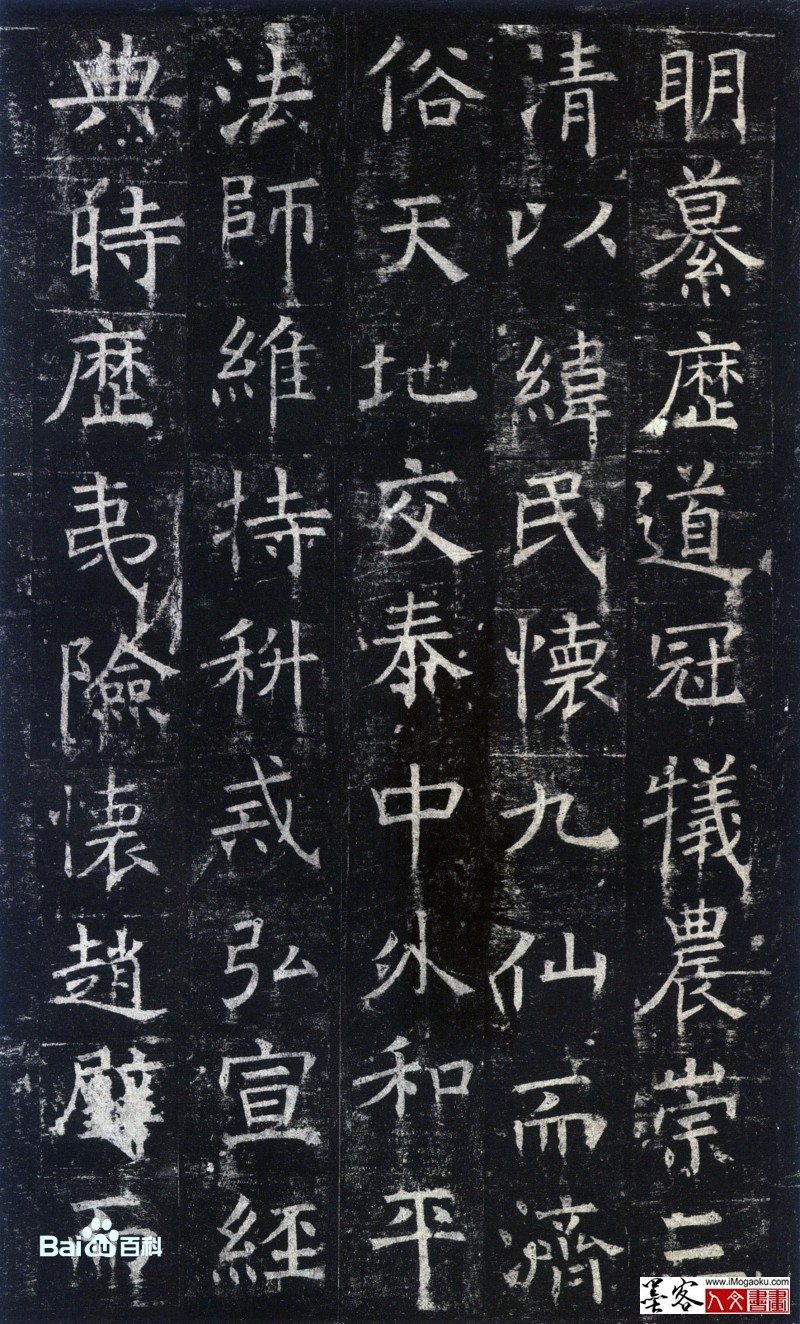 明纂歷道冠犧農崇二
清以緯民懷九仙而濟
俗天地交泰中外和平
法師維持科戒弘宣經
典時歷夷險懷趙璧而
Bai百科
www.iMogaoku.com
墨客人文書畫